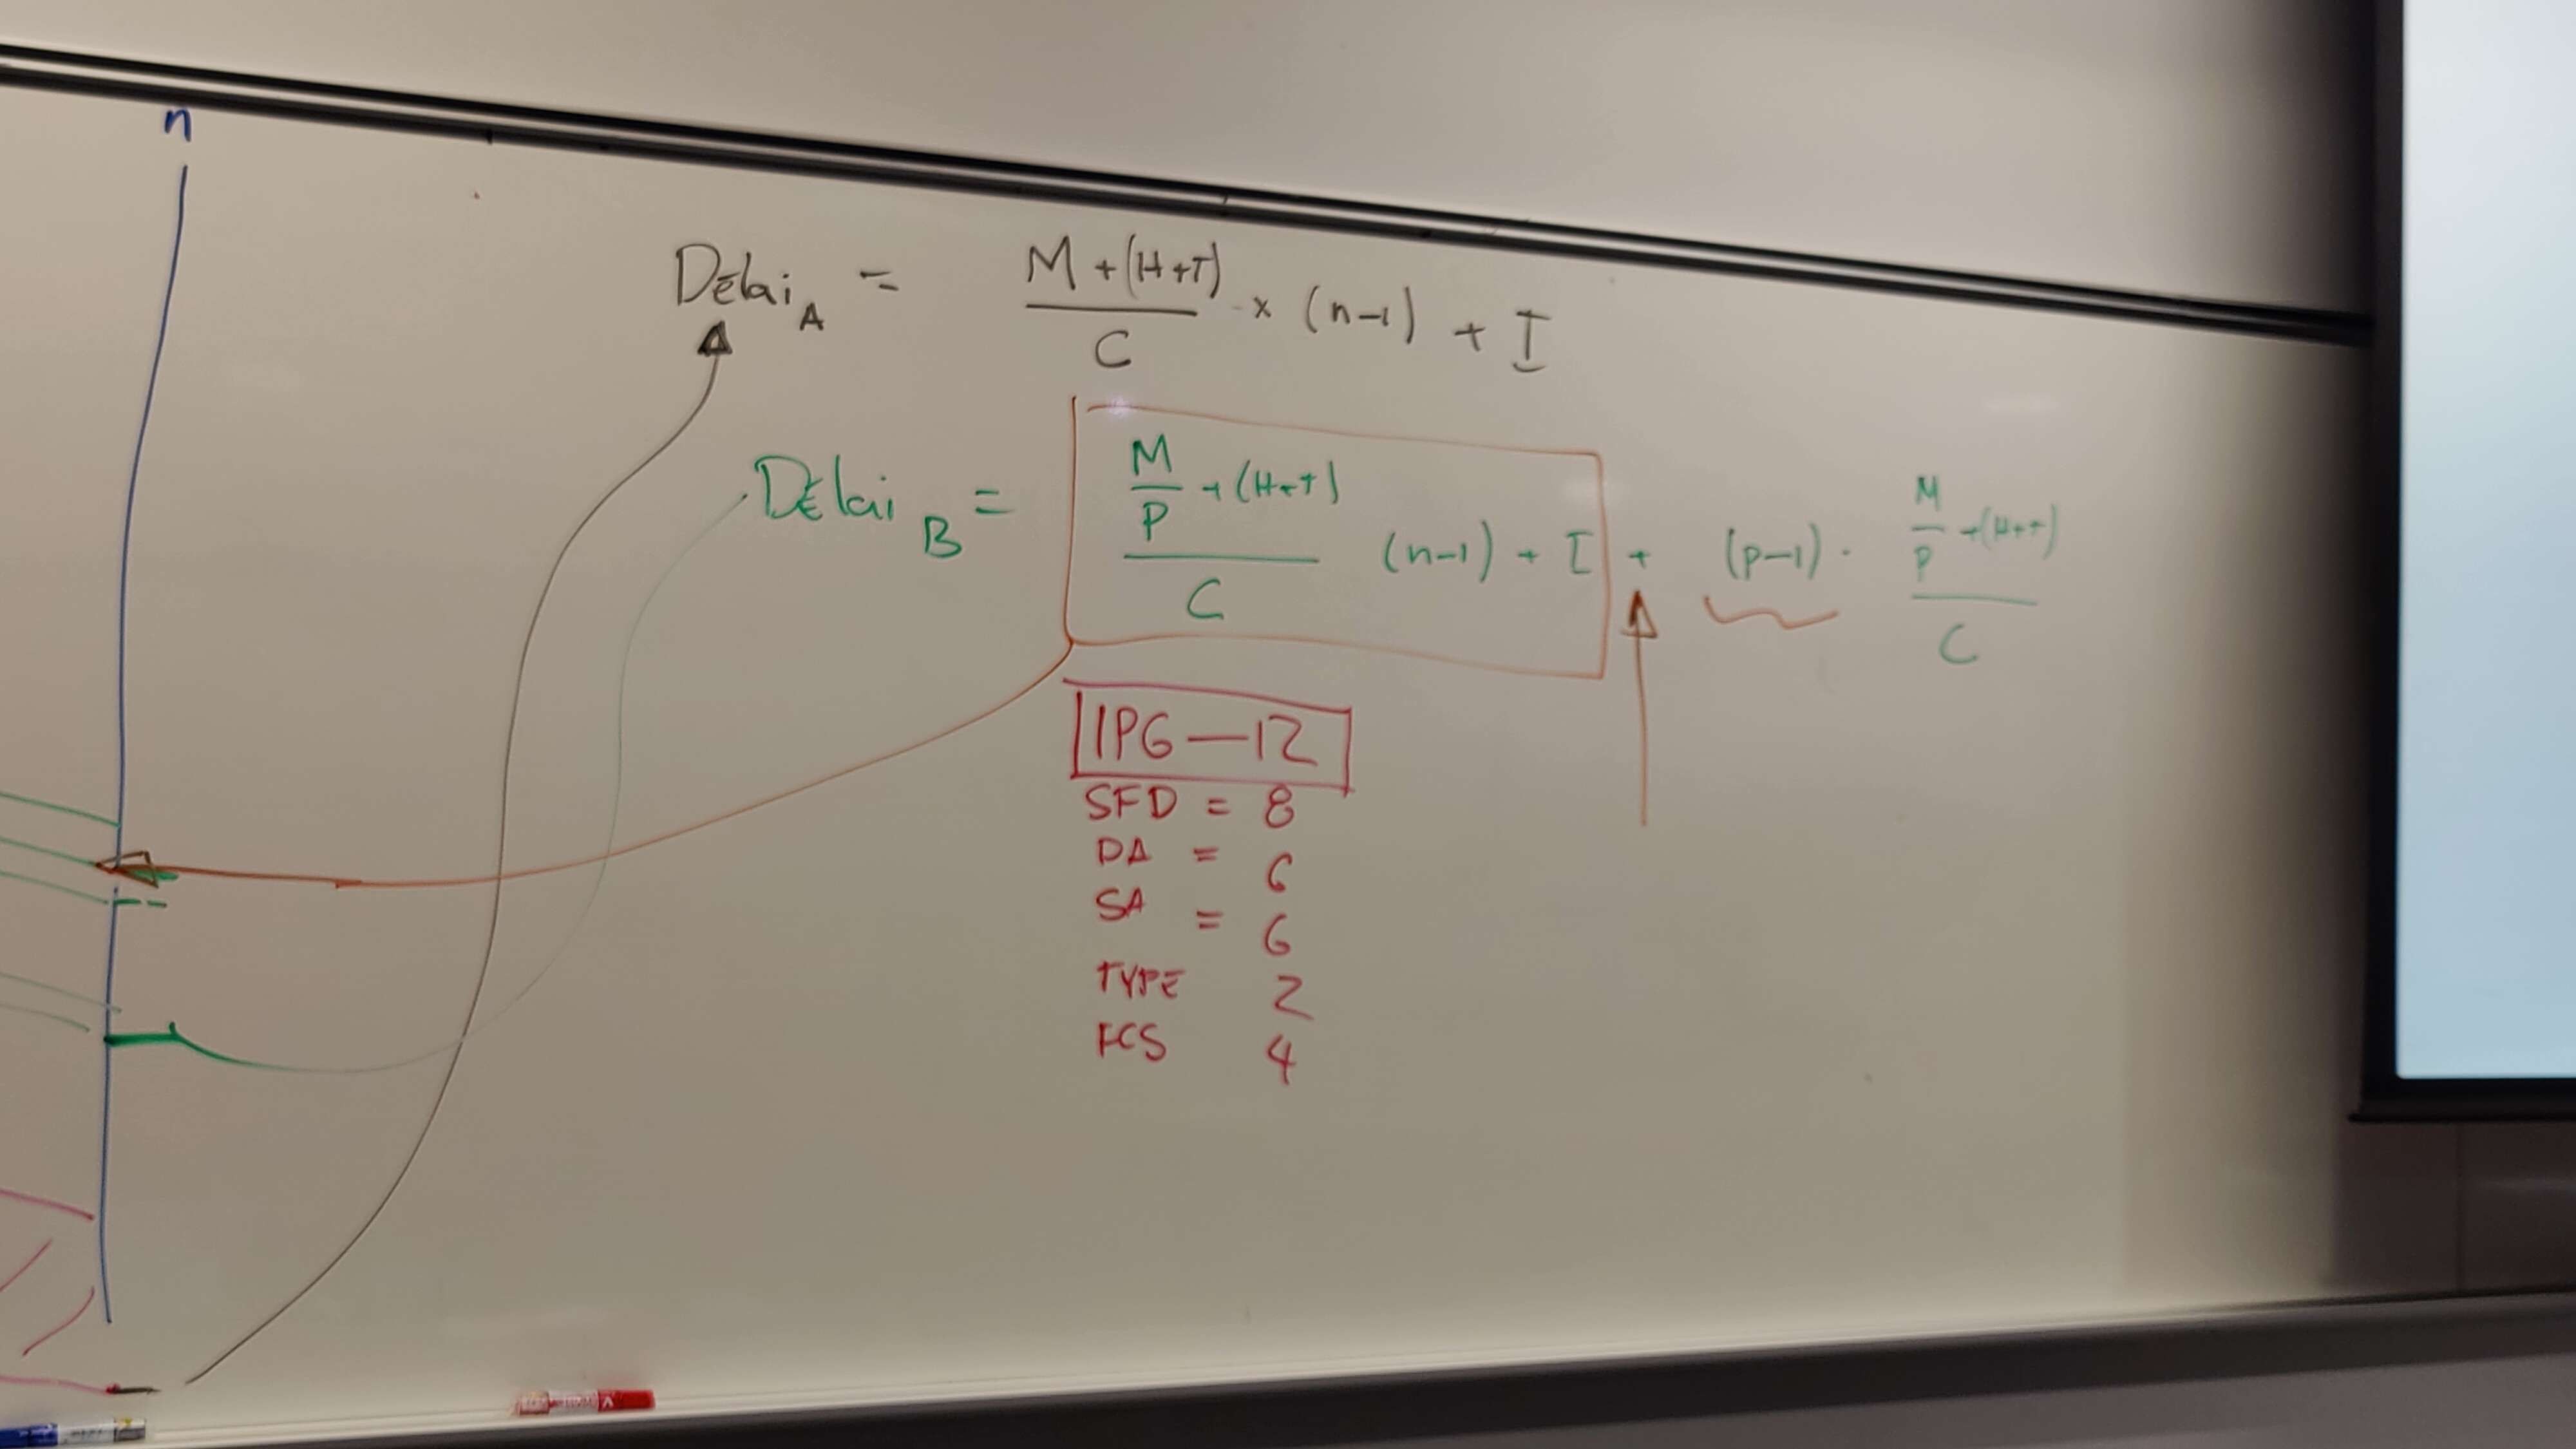 n
Délai_A = (M + (H+T)) / C × (n-1) + I
Délai_B = (M/P + (H+T)) / C (n-1) + I + (p-1) · (M/P + (H+T)) / C
IPG — 12
SFD = 8
DA = 6
SA = 6
TYPE 2
FCS 4